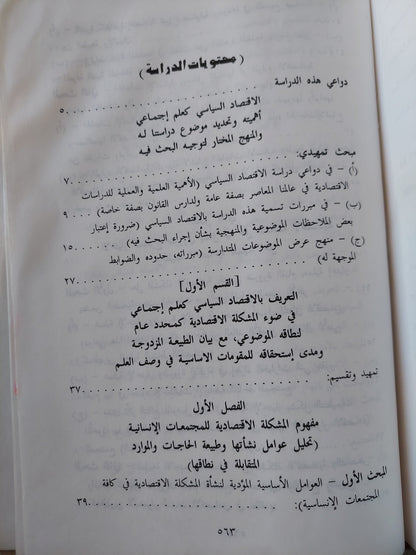 (محتويات الدراسة)
دواعي هذه الدراسة ........ ٥
الاقتصاد السياسي كعلم إجتماعي
أهميته وتحديد موضوع دراستنا له
والمنهج المختار لتوجيه البحث فيه
مبحث تمهيدي: ........ ٧
(أ) – في دواعي دراسة الاقتصاد السياسي (الأهمية العلمية والعملية للدراسات
الاقتصادية في عالمنا المعاصر بصفة عامة ولدارس القانون بصفة خاصة) ... ٩
(ب) – في مبررات تسمية هذه الدراسة بالاقتصاد السياسي (ضرورة إعتبار
بعض الملاحظات الموضوعية والمنهجية بشأن إجراء البحث فيه) ........ ١٥
(ج) – منهج عرض الموضوعات المتدارسة (مبرراته، حدوده والضوابط
الموجهة له) ........ ٢٧
[القسم الأول]
التعريف بالاقتصاد السياسي كعلم إجتماعي
في ضوء المشكلة الاقتصادية كمحدد عام
لنطاقه الموضوعي، مع بيان الطبيعة المزدوجة
ومدى إستحقاقه للمقومات الاساسية في وصف العلم
تمهيد وتقسيم: ........ ٣٧
الفصل الأول
مفهوم المشكلة الاقتصادية للمجتمعات الإنسانية
(تحليل عوامل نشأتها وطبيعة الحاجات والموارد
المتقابلة في نطاقها)
المبحث الأول – العوامل الأساسية المؤدية لنشأة المشكلة الاقتصادية في كافة
المجتمعات الإنساسية): ........ ٣٩
٥٦٣